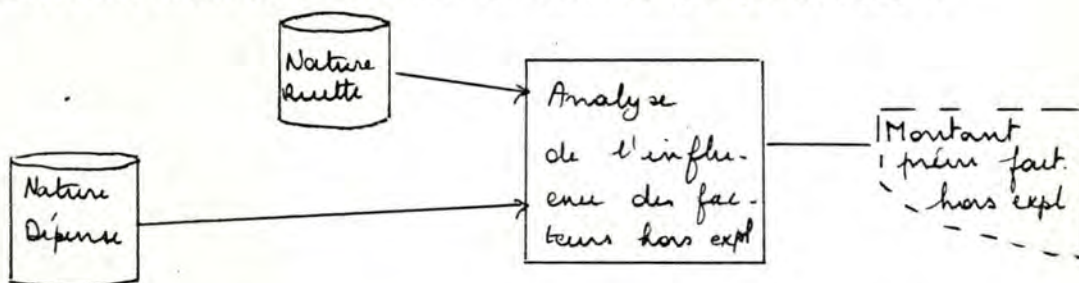 Nature
Recette
Nature
Dépense
Analyse
de l'influ-
ence des fac-
teurs hors expl
Montant
prévu fact.
hors expl